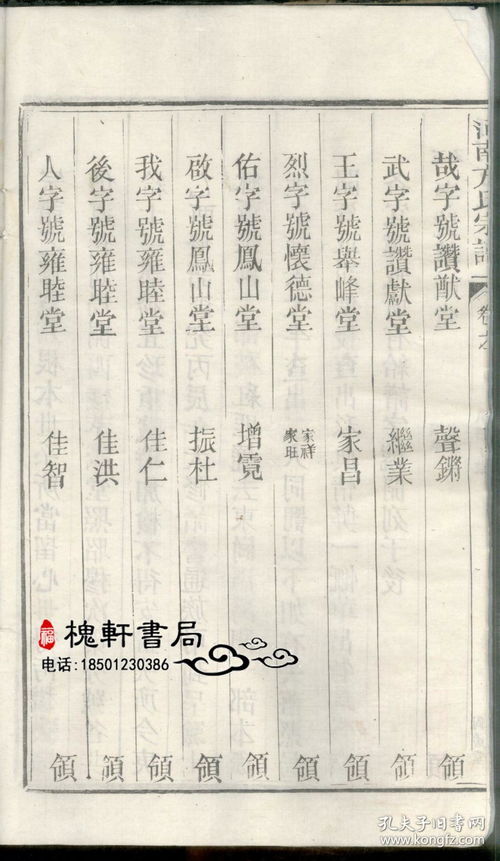 河南方氏宗譜 卷之
哉字號讚猷堂 聲鏘 領
武字號讚獻堂 繼業 領
王字號舉峰堂 家昌 領
烈字號懷德堂 家祥 家班 領
佑字號鳳山堂 增霓 領
啟字號鳳山堂 振杜 領
我字號雍睦堂 佳仁 領
後字號雍睦堂 佳洪 領
人字號雍睦堂 佳智 領
福 槐軒書局
电话:18501230386
孔夫子旧书网
www.kongfz.com